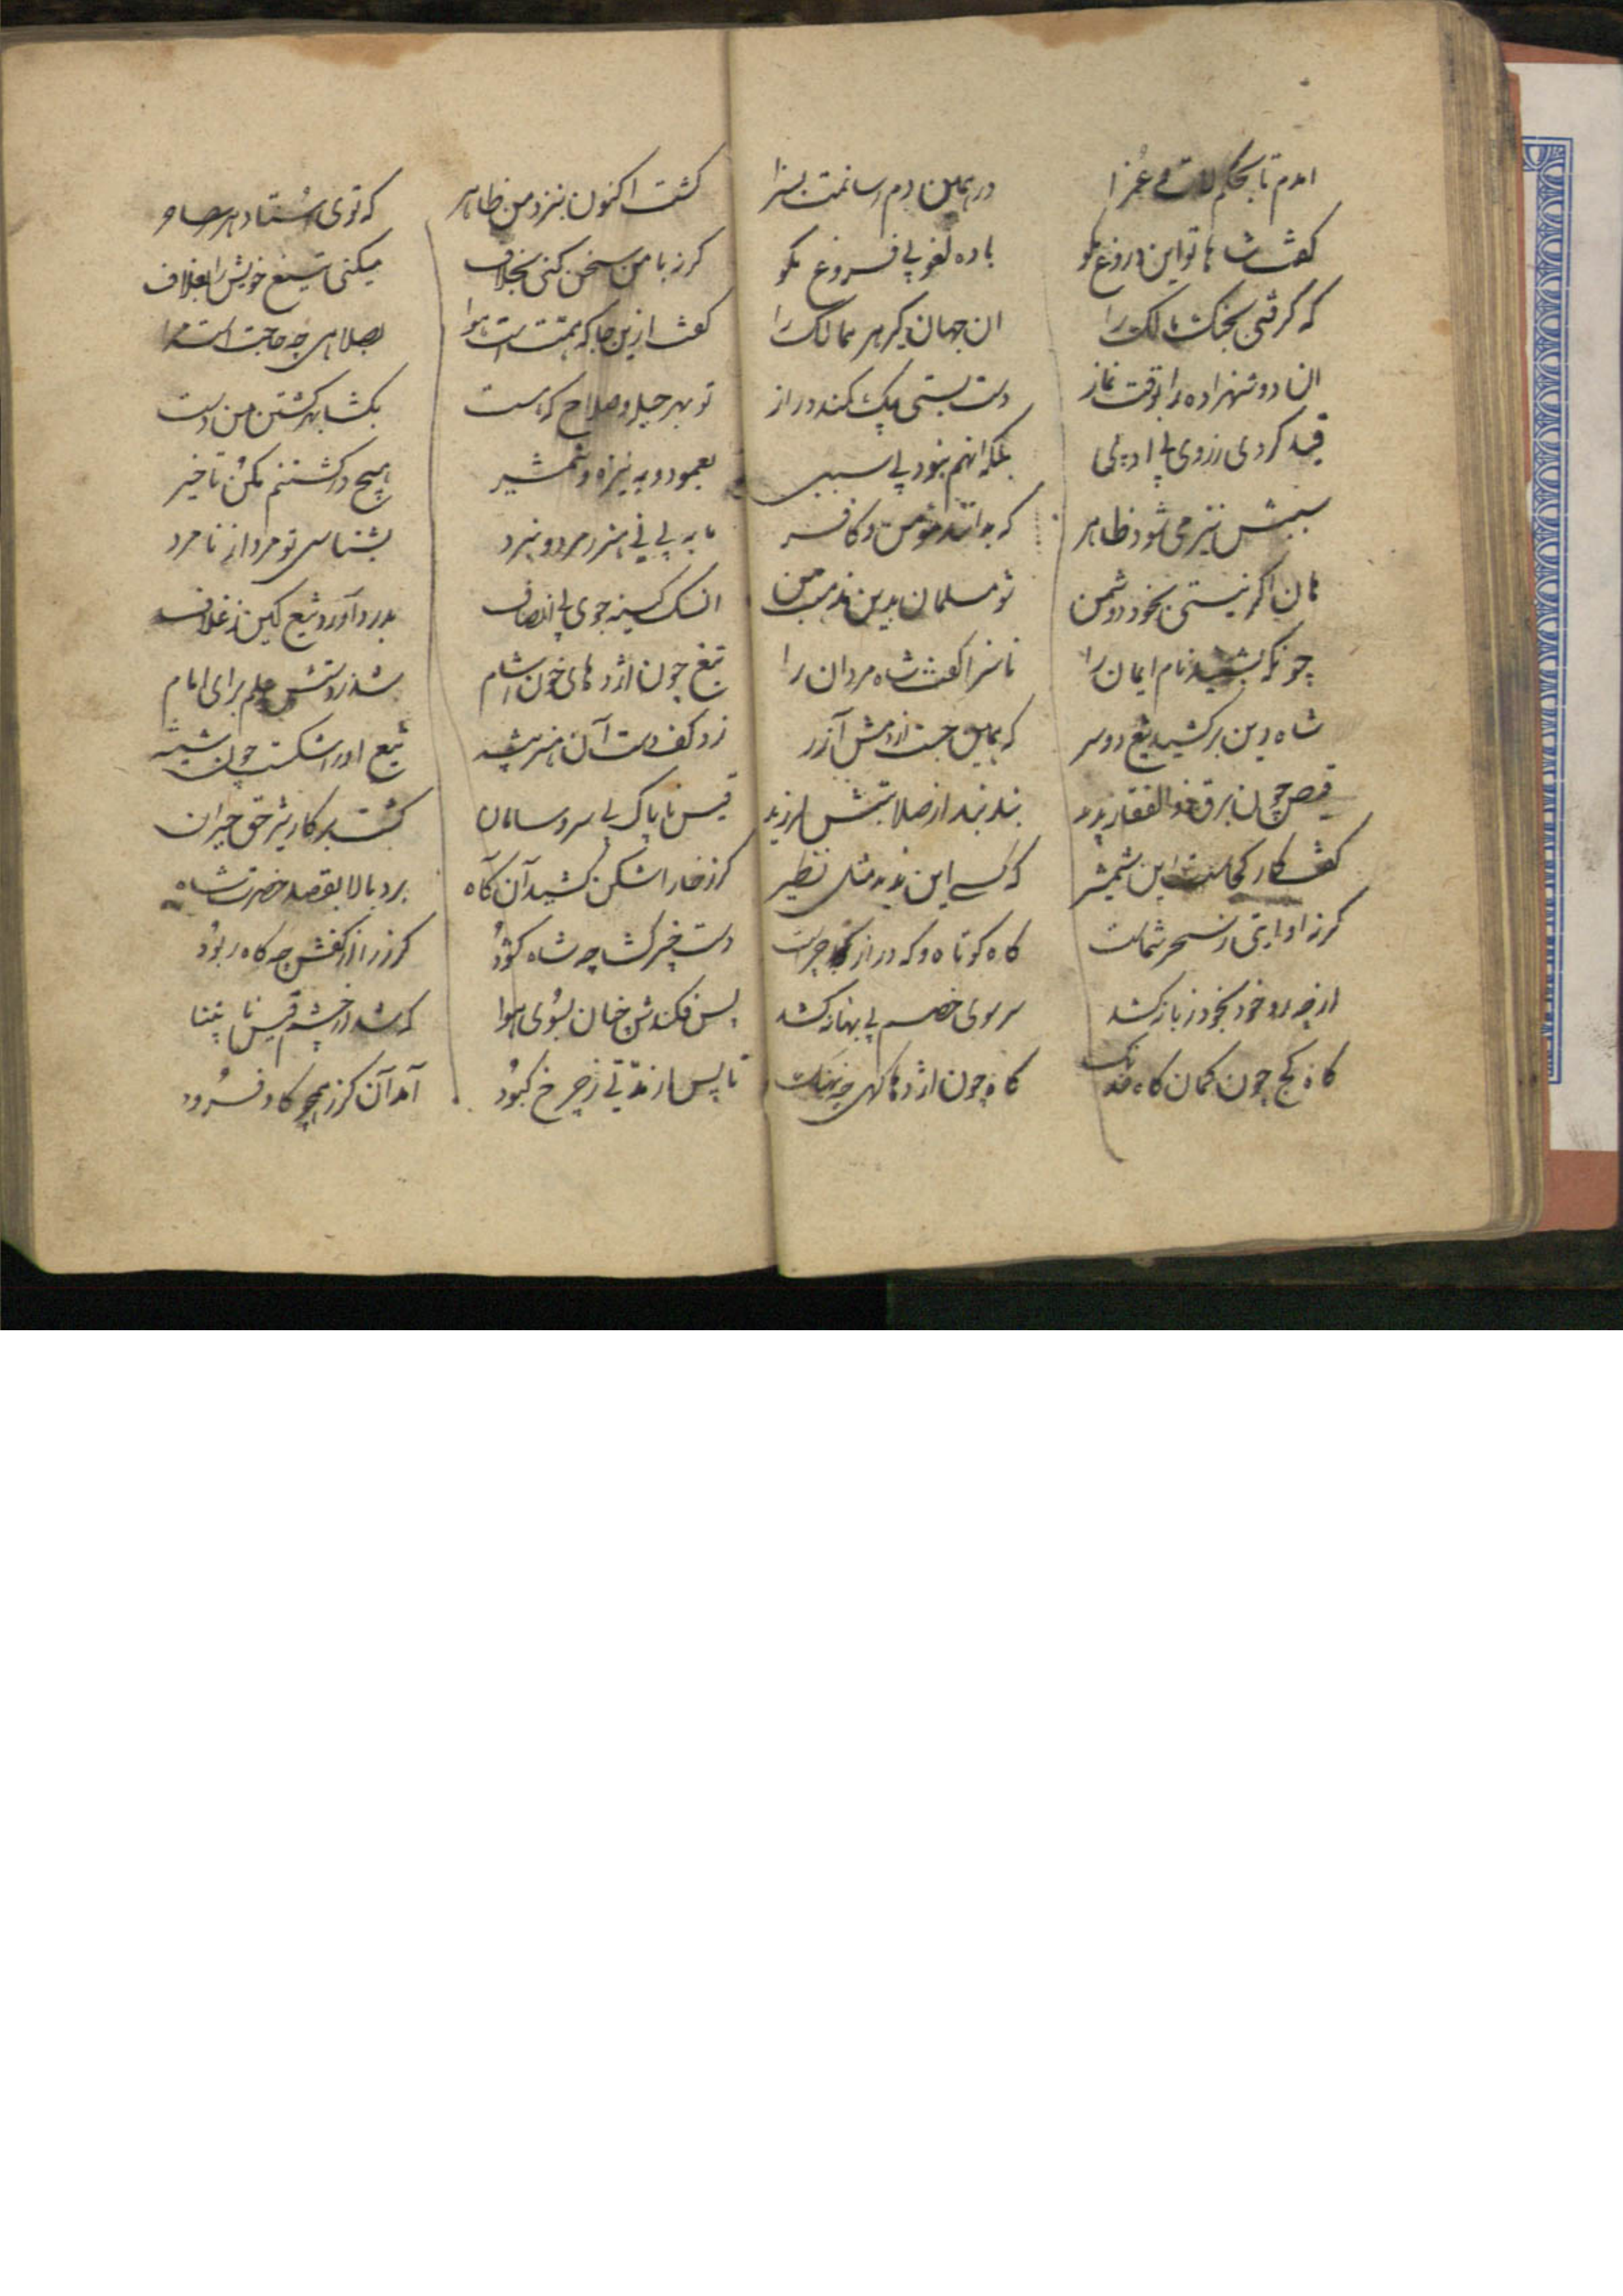 امدم تا بحکم لات و عُزا
در همین دم رسانمت بسزا
کفت شاها تو این دروغ مکو
باده لغو بی فروغ مکو
که کرفتی بجنک مالک را
ان جهان دکر ممالک را
ان دو شهزاده را بوقت نماز
دست بستی بیک کمند دراز
قید کردی ز روی بی ادبی
بلکه انهم نبود بی سببی
سببش نیز می شود ظاهر
که بدانند مؤمن و کافر
هان اکر نیستی بخود دشمن
شو مسلمان بدین مذهب من
چونکه بشنید نام ایمان را
ناسزا کفت شاه مردان را
شاه دین برکشید تیغ دوسر
که همین جست از دمش آزر
قیص چون برق ذوالفقار بدید
بند بند از صلابتش لرزید
کفت کار کجاست این شمشیر
که کسی این ندید مثل نظیر
کرز او ایتی ز سحر شماست
کاه کوتاه و که دراز چراست
از چه رو خود بخود زباز کشد
سر سوی خصم بی بهانه کشد
کاه کج چون کمان کاه خدنک
کاه چون اژدها کهی چو نهنک
کشت اکنون بنزد من ظاهر
که توی استاد هر ساحر
کرز با من سخن کنی بخلاف
میکنی تیغ خویش را بغلاف
کفت ازین جا که همتست مرا
بصلاحی چه حاجت است مرا
تو بهر حیل و صلاح که است
بکشا بهر کشتن من دست
بعمود و به نیزه و شمشیر
هیچ در کشتنم مکن تاخیر
تا به بینی هنر مرد و نبرد
بشناسی تو مرد از نامرد
ان سک کینه جوی بی انصاف
بدر آورد تیغ کین ز غلاف
تیغ چون اژدهای خون اشام
شد ز دستش علم برای امام
زد کف دست آن هنر پیشه
تیغ او را شکست چون شیشه
قیس ناپاک بی سر و سامان
کشت بر کار شیر حق حیران
کرز خارا شکن کشید آن کاه
برد بالا بقصد حضرت شاه
دست خیبر کشا چه شاه کشود
کرز را از کفش چه کاه ربود
پس فکندش چنان بسوی هوا
که شد از چشم قیس نا پیدا
تا پس از مدتی ز چرخ کبود
آمد آن کرز همچو کاه فرود